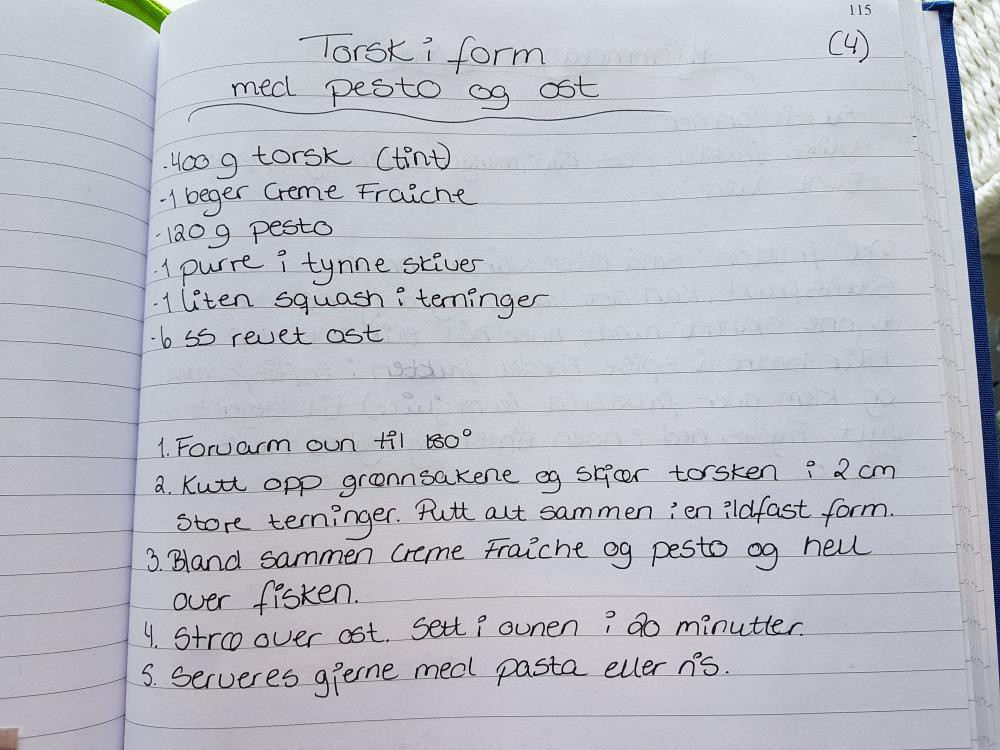 115
Torsk i form (4)
med pesto og ost
-400 g torsk (tint)
-1 beger Creme Fraiche
-120 g pesto
-1 purre i tynne skiver
-1 liten squash i terninger
-6 ss revet ost
1. Forvarm ovn til 180°
2. Kutt opp grønnsakene og skjær torsken i 2 cm
store terninger. Putt alt sammen i en ildfast form.
3. Bland sammen Creme Fraiche og pesto og hell
over fisken.
4. Strø over ost. Sett i ovnen i 20 minutter.
5. Serveres gjerne med pasta eller ris.